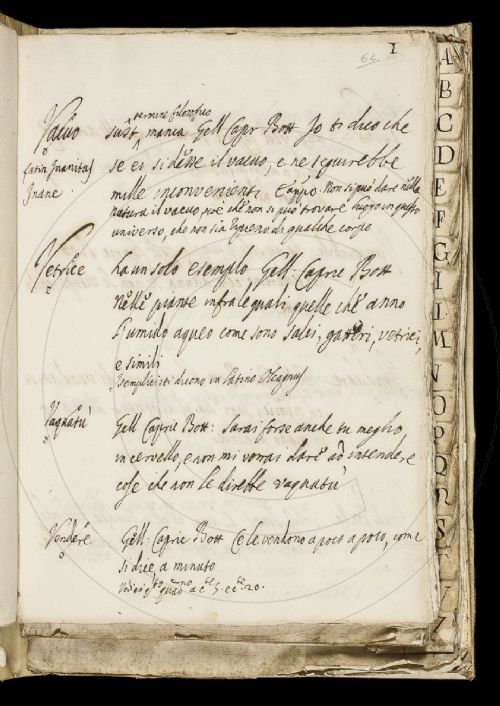 1
62
Vacuo
termine filosofico
sust. manca Gell Capr Bott Io ti dico che
Latin Inanitas
se ei si desse il vacuo, e ne seguirebbe
Inane
mille inconvenienti,
Non si può dar nella
natura il vacuo, cioè che non si può trovare luogo in questo
universo, che non sia ripieno di qualche corpo
Vetrice ha un solo esemplo Gell. Capric Bott
Nelle piante infra le quali quelle che anno
l'umido aqueo come sono salci, gatteri, vetrici,
e simili
I semplicisti dicono in latino Oleagnus
Vagnatù Gell Capric Bott: Sarai forse anche tu meglio
in cervello, e non mi vorrai dare ad intendere
cose che non le direbbe vagnatù
Vendere Gell: Capric Bott Ce le vendono a poco a poco, come
si dice a minuto
A
B
C
D
E
F
G
I
L
M
N
O
P
Q
R
S
T
V
Z